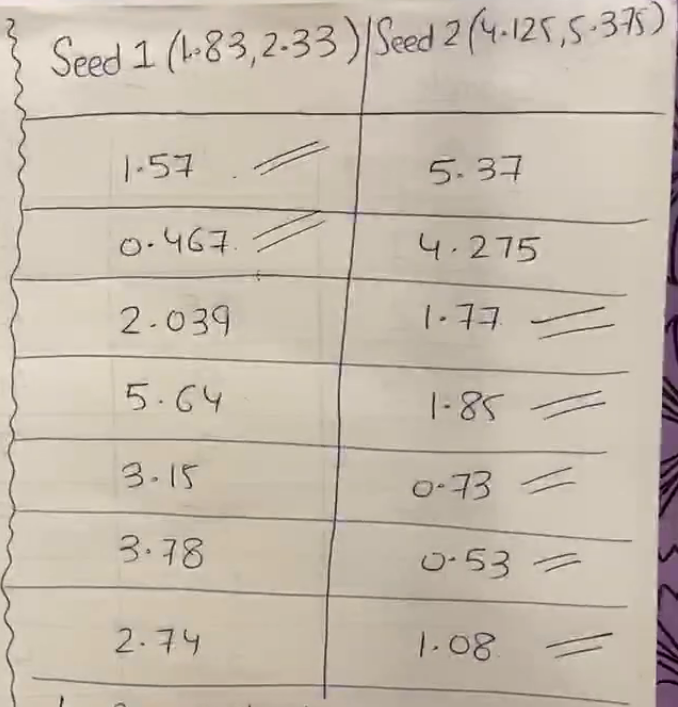 Seed 1 (1.83, 2.33) Seed 2 (4.125, 5.375)
1.57 5.37
0.467 4.275
2.039 1.77
5.64 1.85
3.15 0.73
3.78 0.53
2.74 1.08